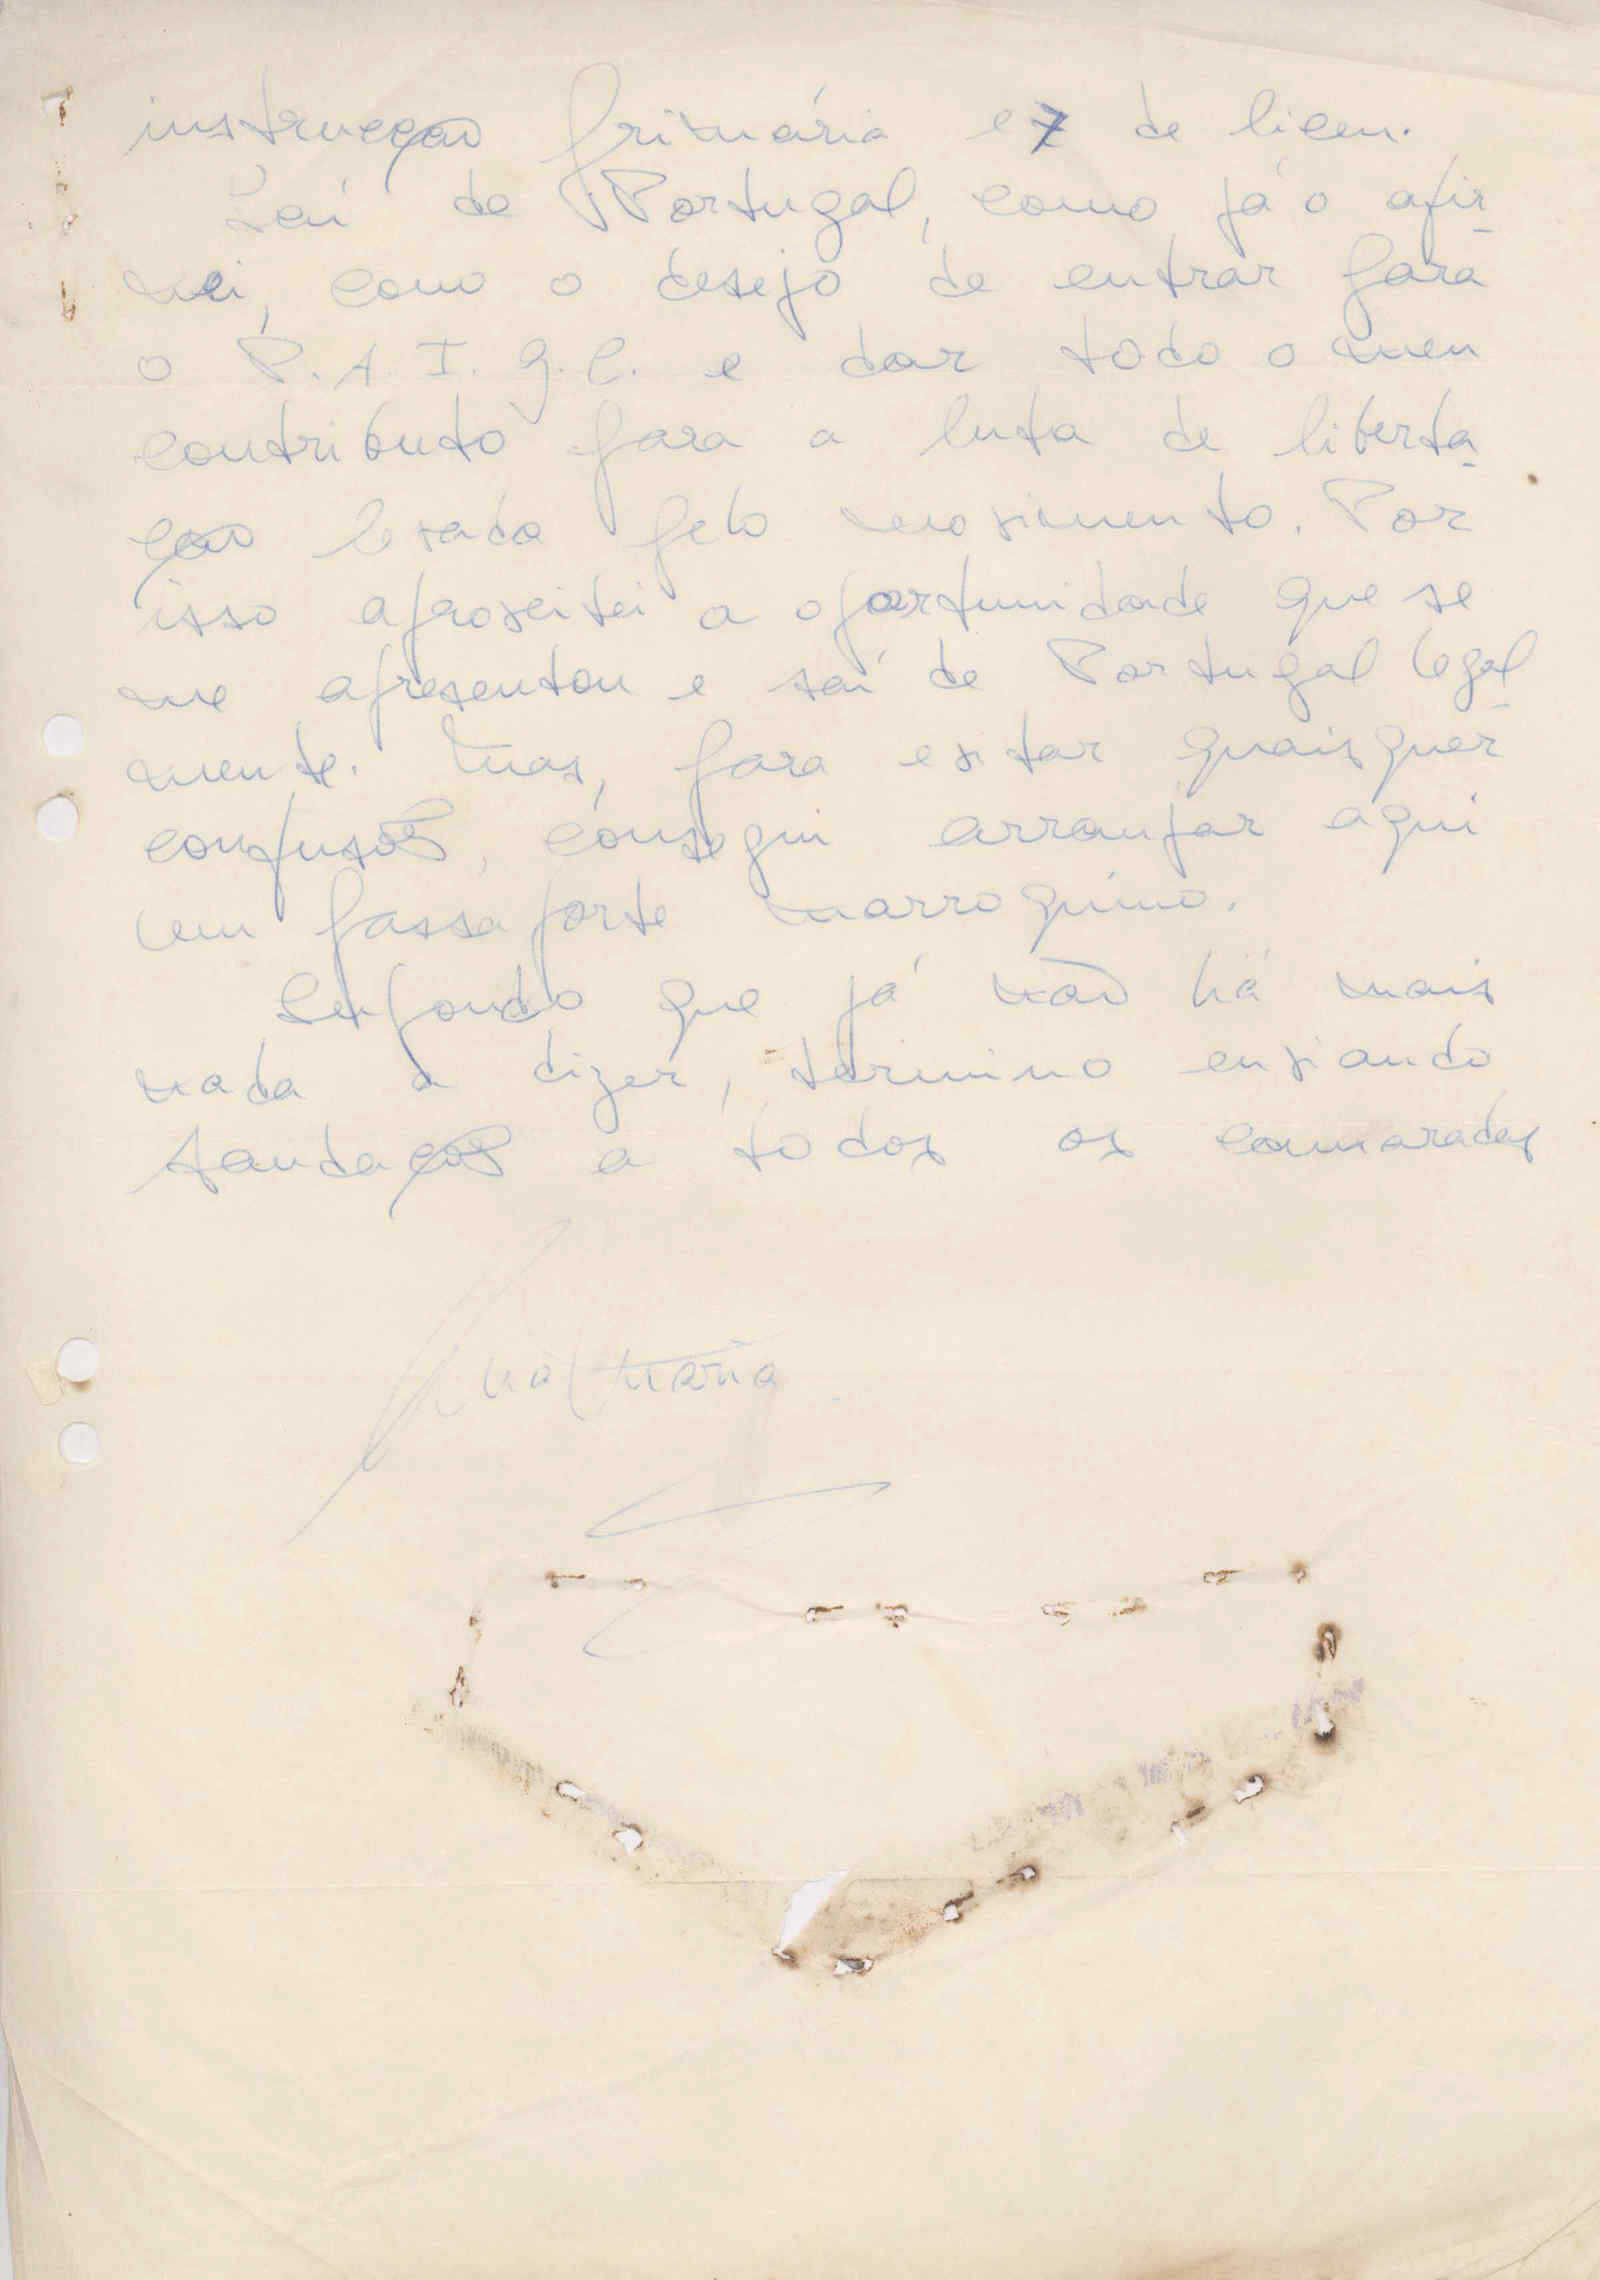 instrucção primária e 7 de liceu.
Saí de Portugal, como já o afir-
mei, como o desejo de entrar para
o P.A.I.G.C. e dar todo o meu
contributo para a luta de liberta-
ção levada pelo movimento. Por
isso aproveitei a oportunidade que se
me apresentou e saí de Portugal legal-
mente. Mas, para evitar quaisquer
confusões, consegui arranjar aqui
um passaporte marroquino.
Supondo que já não há mais
nada a dizer, termino enviando
saudações a todos os camaradas
Ana Maria